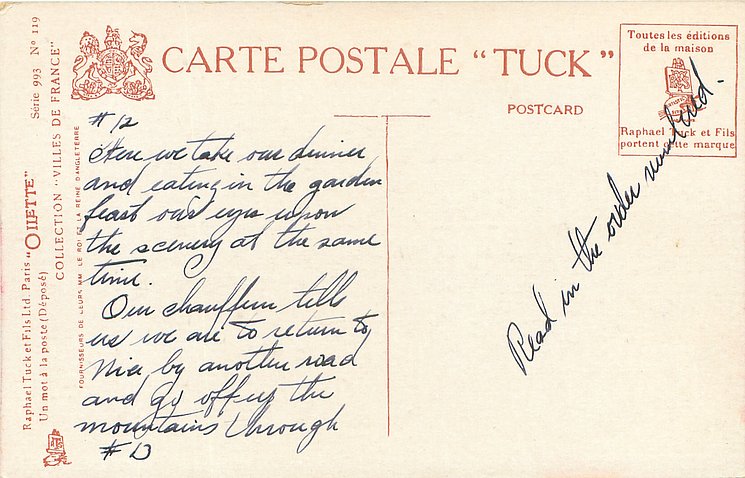 CARTE POSTALE "TUCK"
POSTCARD
Toutes les éditions
de la maison
Raphael Tuck et Fils
portent cette marque
Série 993 Nº 119
COLLECTION "VILLES DE FRANCE"
"OILETTE"
Raphael Tuck et Fils Ltd. Paris
Un mot à la poste (Déposé)
FOURNISSEURS DE LEURS MM. LE ROI ET LA REINE D'ANGLETERRE
#12
Here we take our dinner
and eating in the garden
feast our eyes upon
the scenery at the same
time.
Our chauffeur tells
us we are to return to
Nice by another road
and go off up the
mountains through
#13
Read in the order numbered.